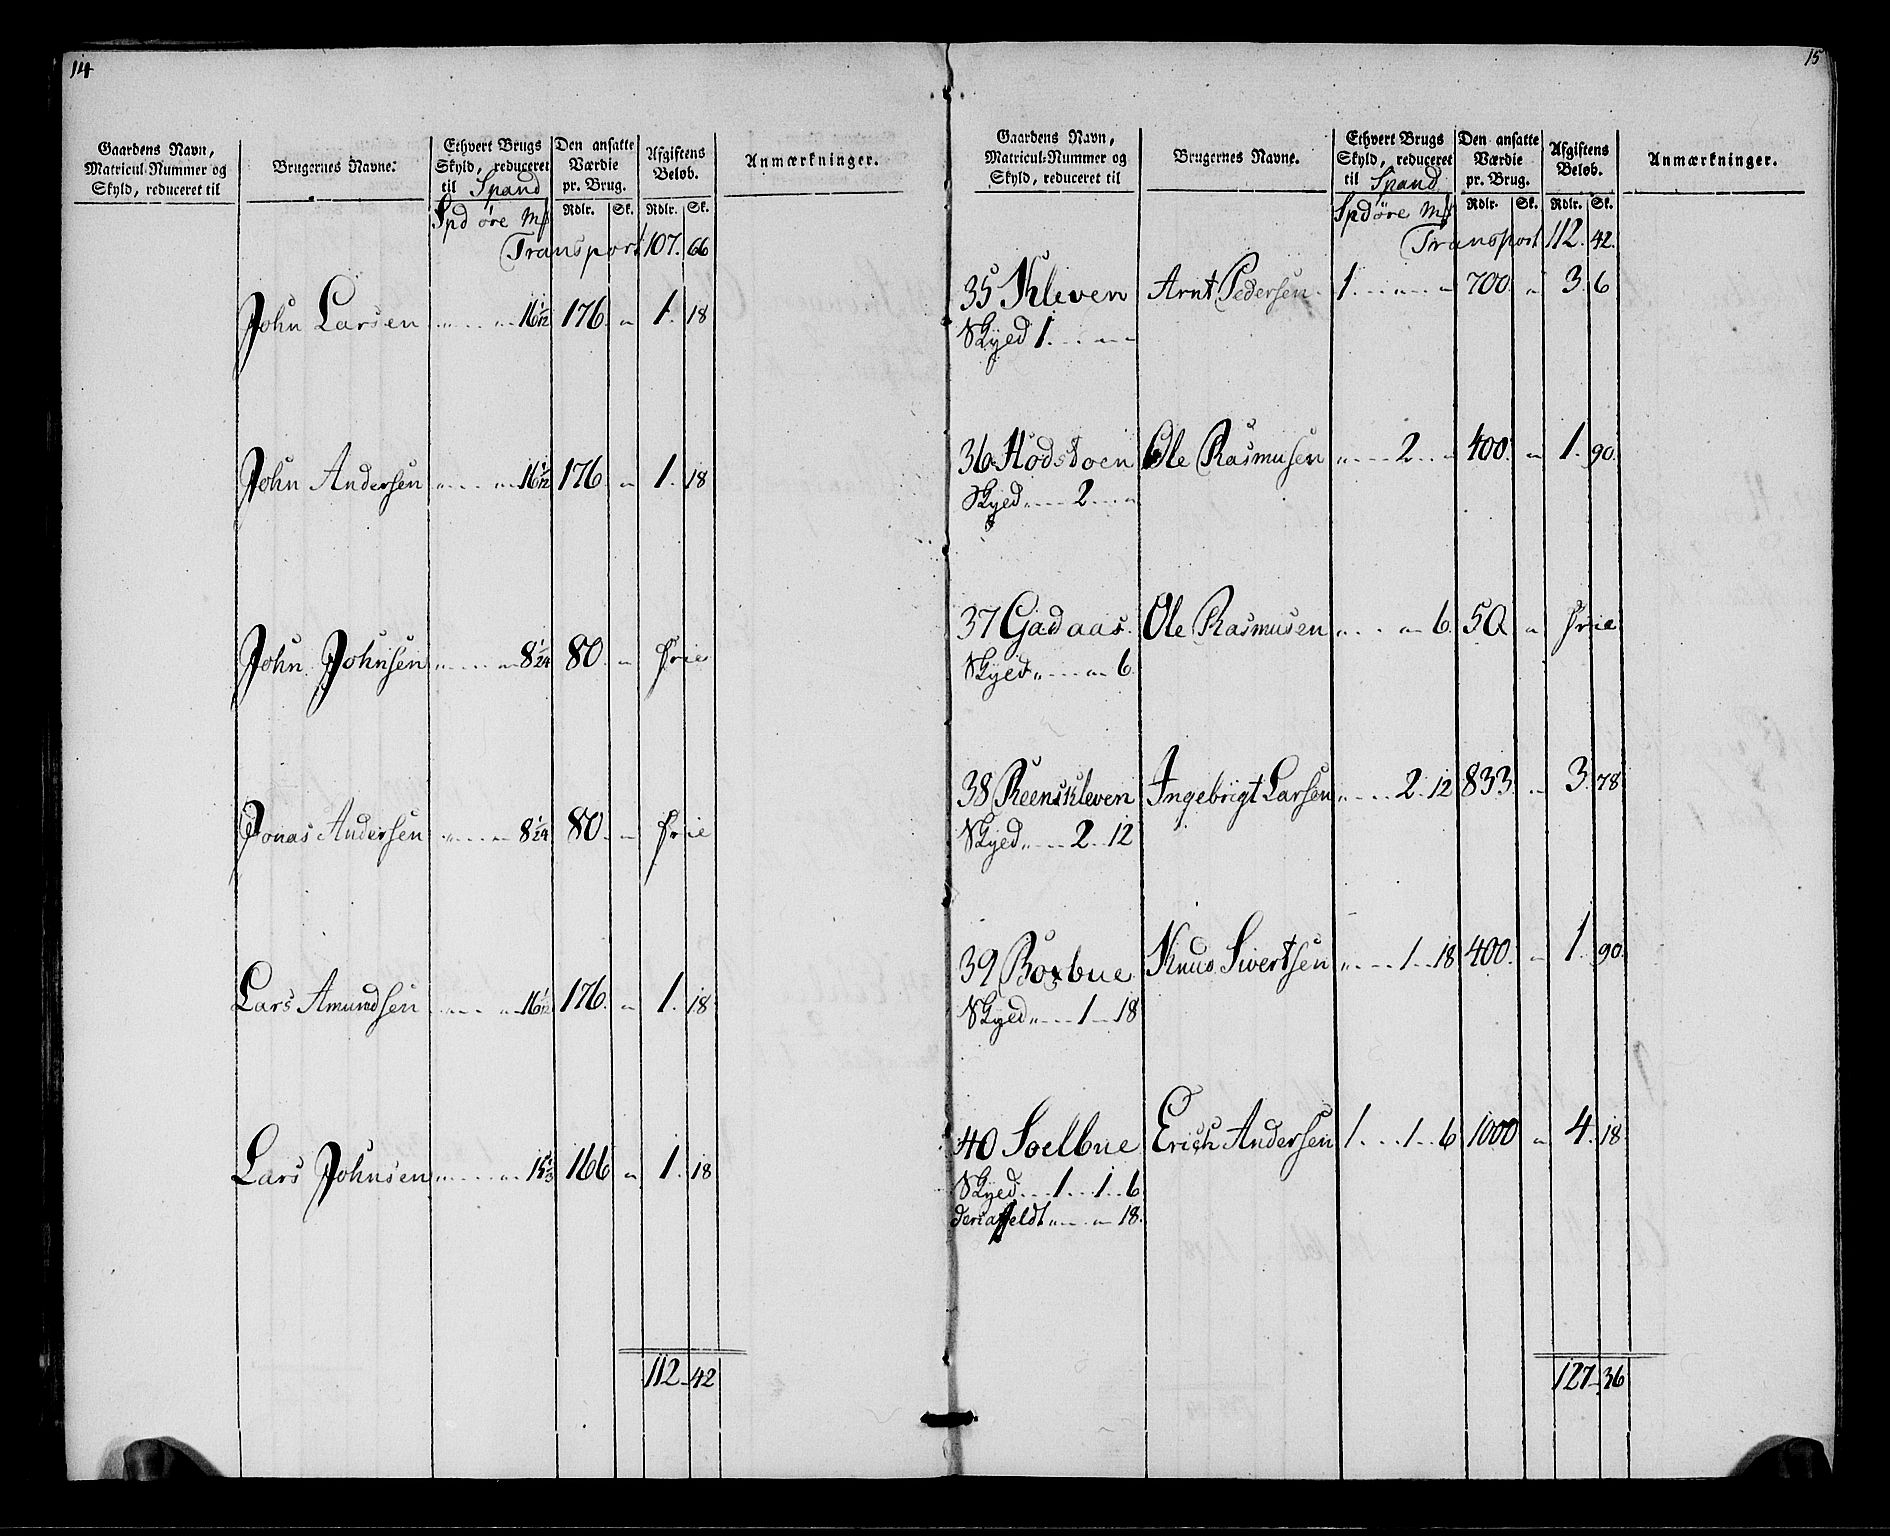 14
Gaardens Navn, Matricul-Nummer og Skyld, reduceret til | Brugernes Navne. | Ethvert Brugs Skyld, reduceret til Spand | Den ansatte Værdie pr. Brug. | Afgiftens Beløb. | Anmærkninger.
Spd øre Mk | Rdlr. | Sk. | Rdlr. | Sk.
Transport 107. 66
John Larsen " " 16 1/12 176. " 1. 18
John Andersen " " 16 1/12 176. " 1. 18
John Johnsen " " 8 1/24 80. " Frie
Jonas Andersen " " 8 1/24 80. " Frie
Lars Amundsen " " 16 1/12 176. " 1. 18
Lars Johnsen " " 15 1/3 166 " 1. 18
112. 42
15
Gaardens Navn, Matricul-Nummer og Skyld, reduceret til | Brugernes Navne. | Ethvert Brugs Skyld, reduceret til Spand | Den ansatte Værdie pr. Brug. | Afgiftens Beløb. | Anmærkninger.
Spd øre Mk | Rdlr. | Sk. | Rdlr. | Sk.
Transport 112. 42.
35 Kleven Arnt Pedersen 1 " " 700. " 3. 6
Skyed 1. " "
36 Hodstoen Ole Rasmusen " 2 " 400. " 1. 90.
Skyed " 2 "
37 Gjadaas. Ole Rasmusen " " 6. 50 " Frie
Skyed " " 6.
38 Reenskleven Ingebrigt Larsen " 2. 12 833. " 3. 78
Skyed " 2. 12
39 Boxbue Knud Sivertsen " 1. 18 400. " 1. 90.
Skyed " 1 18
40 Soelbue Erich Andersen 1. 1. 6 1000 " 4. 18.
Skyed 1. 1. 6
deraf feldt " " 18.
127. 36